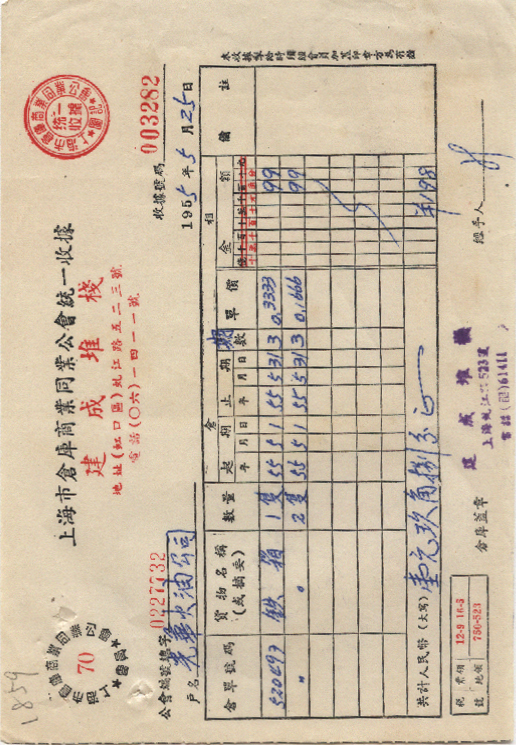 上海市倉庫商業同業公會統一收據
建成堆棧
地址(虹口區)虬江路五二三號
電話(〇六)一四一一號
統一收據
70
1859
公會編號總字 0227732
收據號碼 003282
戶名 光華火油公司
1955年5月25日
倉單號碼 貨物名稱(或摘要) 數量 倉期 起 年 月 日 止 年 月 日 期數 單價 租金額 備註
520697 鉄箱 1隻 55 5 1 55 5 31 3 0.3333 99
〃 〃 2隻 55 5 1 55 5 31 3 0.1666 99
共計人民幣(大寫) 壹元玖角捌分正 1.98
稅號 12-9 16-3
地領 750-523
倉庫蓋章
建成堆棧
上海虬江路523號
電話(02)61411
經手人
本收據擎給時須經會員加蓋印章方為有效